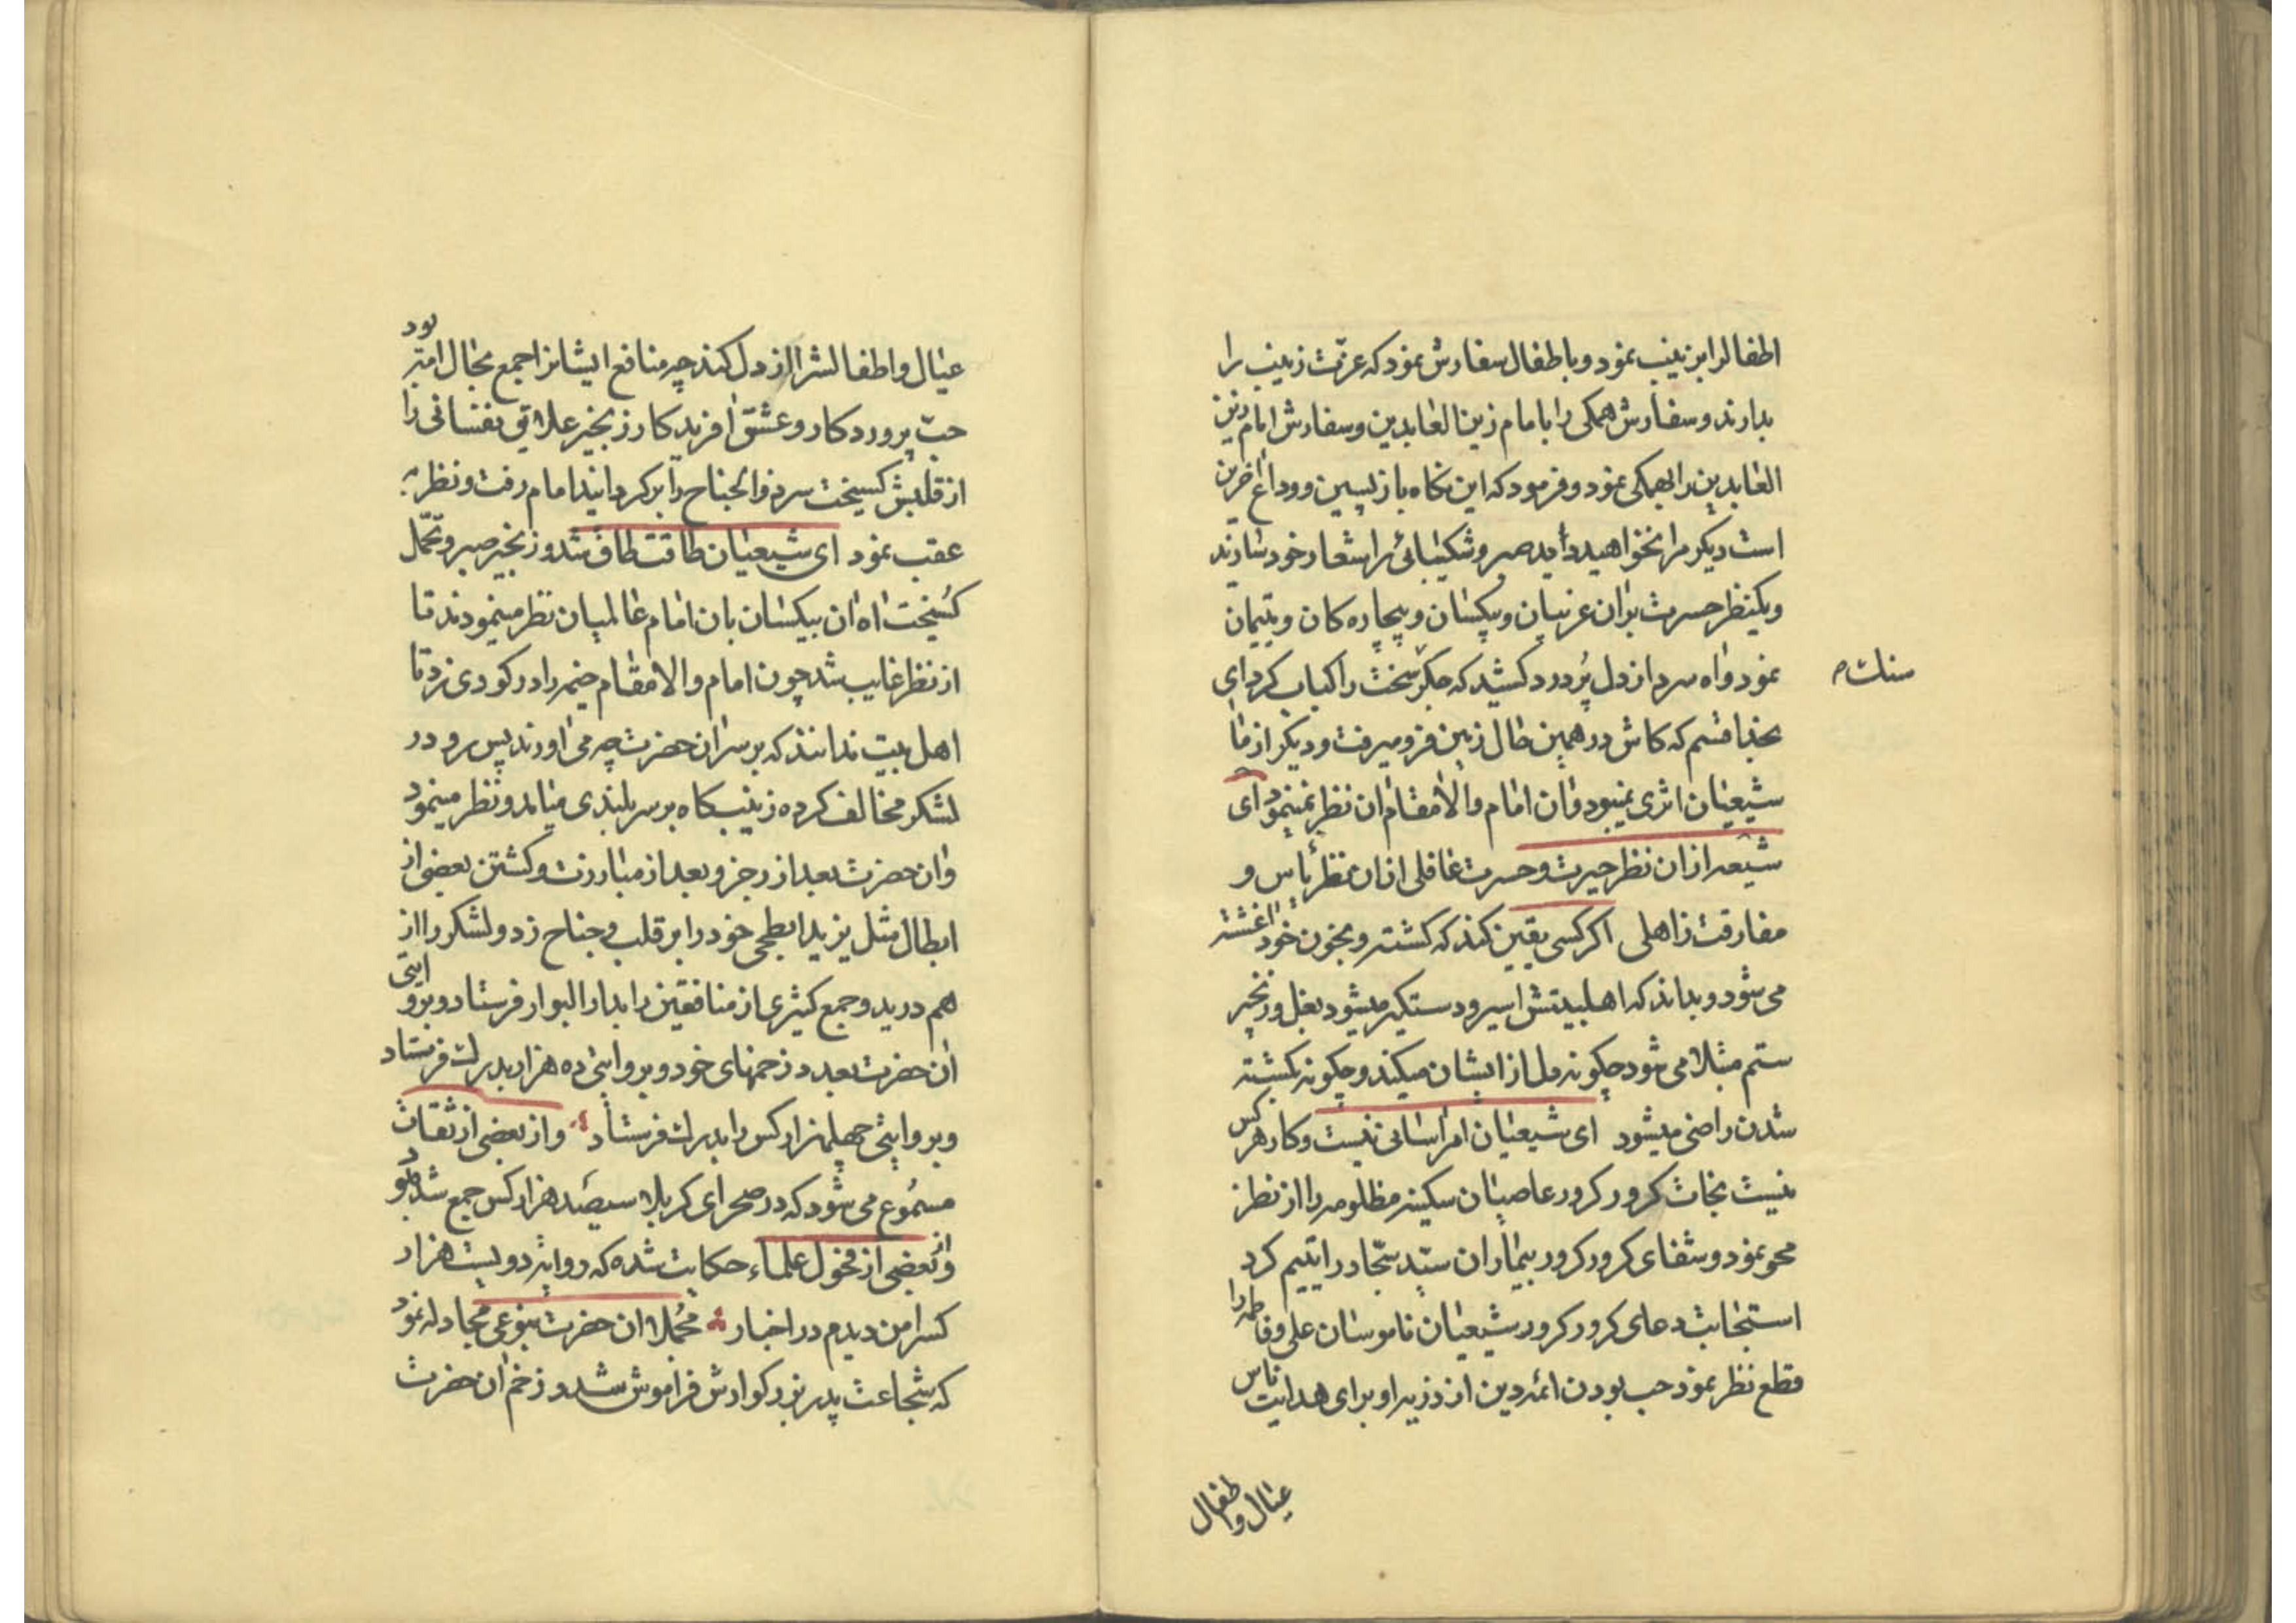 اطفالرا بزینب نمود و باطفال سفارش نمود که عزّت زینب را
بدارند و سفارش همکی را بامام زین العابدین و سفارش امام زین
العابدین را بهمکی نمود و فرمود که این نکاه بازپسین و وداع آخرین
است دیکر مرا نخواهید دید صبر و شکیبائی را شعار خود سازید
و یکنظر حسرت بران غریبان و بیکسان و بیچاره کان و یتیمان
نمود و آه سرد از دل پُر درد کشید که جکر سخت را کباب کرد ای
سنك
بخدا قسم که کاش در همین حال زمین فرو میرفت و دیکر از ما
شیعیان اثری نمیبود و آن امام والامقام آن نظر نمینمود ای
شیعه از ان نظر حیرت و حسرت غافلی از ان نظر یأس و
مفارقت ذاهلی اکر کسی یقین کند که کشته و بخون خود آغشته
می شود و بداند که اهلبیتش اسیر و دستکیر میشود بغل و زنجیر
ستم مبتلا می شود چکونه دل از ایشان میکند و چکونه بکشته
شدن راضی میشود ای شیعیان امر آسانی نیست و کار هر کس
نیست نجات کرور کرور عاصیان سکینه مظلومه را از نظرز
محو نمود و شفای کرور کرور بیماران سیّد سجّاد را یتیم کرد
استجابت دعای کرور کرور شیعیان ناموسان علی و فاطمه را
قطع نظر نمود حب بودن ائمه دین از ذریه او برای هدایت ناس
عیال و اطفال
عیال و اطفالشرا از دل کند چه منافع ایشانرا جمع مجال امت بود
حبّ پروردکار و عشق آفریدکار زنجیر علایق نفسانی را
از قلبش کسیخت سر ذوالجناح را بر کردانید امام رفت و نظر به
عقب نمود ای شیعیان طاقت طاق شد و زنجیر صبر و تحمّل
کُسیخت آه آن بیکسان بان امام عالمیان نظر مینمودند تا
از نظر غایب شد چون امام والامقام خیمه را در کودی زد تا
اهل بیت ندانند که بر سر ان حضرت چه می آورند پس رو در
لشکر مخالف کرده زینب کاه بر سر بلندی میامد و نظر مینمود
و آن حضرت بعد از رجز و بعد از مبارزت و کشتن بعضی از
ابطال مثل یزید ابطحی خود را بر قلب و جناح زد و لشکر را از
هم درید و جمع کثیری از منافقین را بدار البوار فرستاد و بروایتی
آن حضرت بعدد زخمهای خود و بروایتی ده هزار بدرك فرستاد
و بروایتی چهلهزار کس را بدرك فرستاد و از بعضی از ثقات
مسمُوع می شود که در صحرای کربلا سیصد هزار کس جمع شد
و از بعضی از فحول علماء حکایت شده که روایت دویست هزار
کسرا من دیدم در اخبار مجُملا ان حضرت بنوعی مجادله نمود
که شجاعت پدر بزرکوارش فراموش شد و زخم ان حضرت